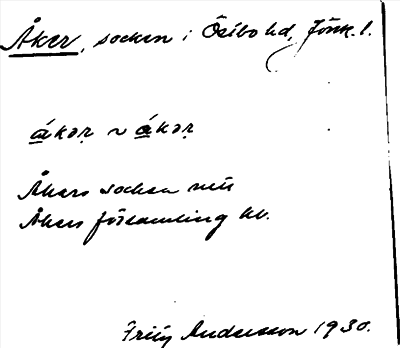 Åker, socken i Östbo hd, Jönk. l.
åkər ~ åkər
Åkers socken
Åkers församling kb.
Fritz Andersson 1930.